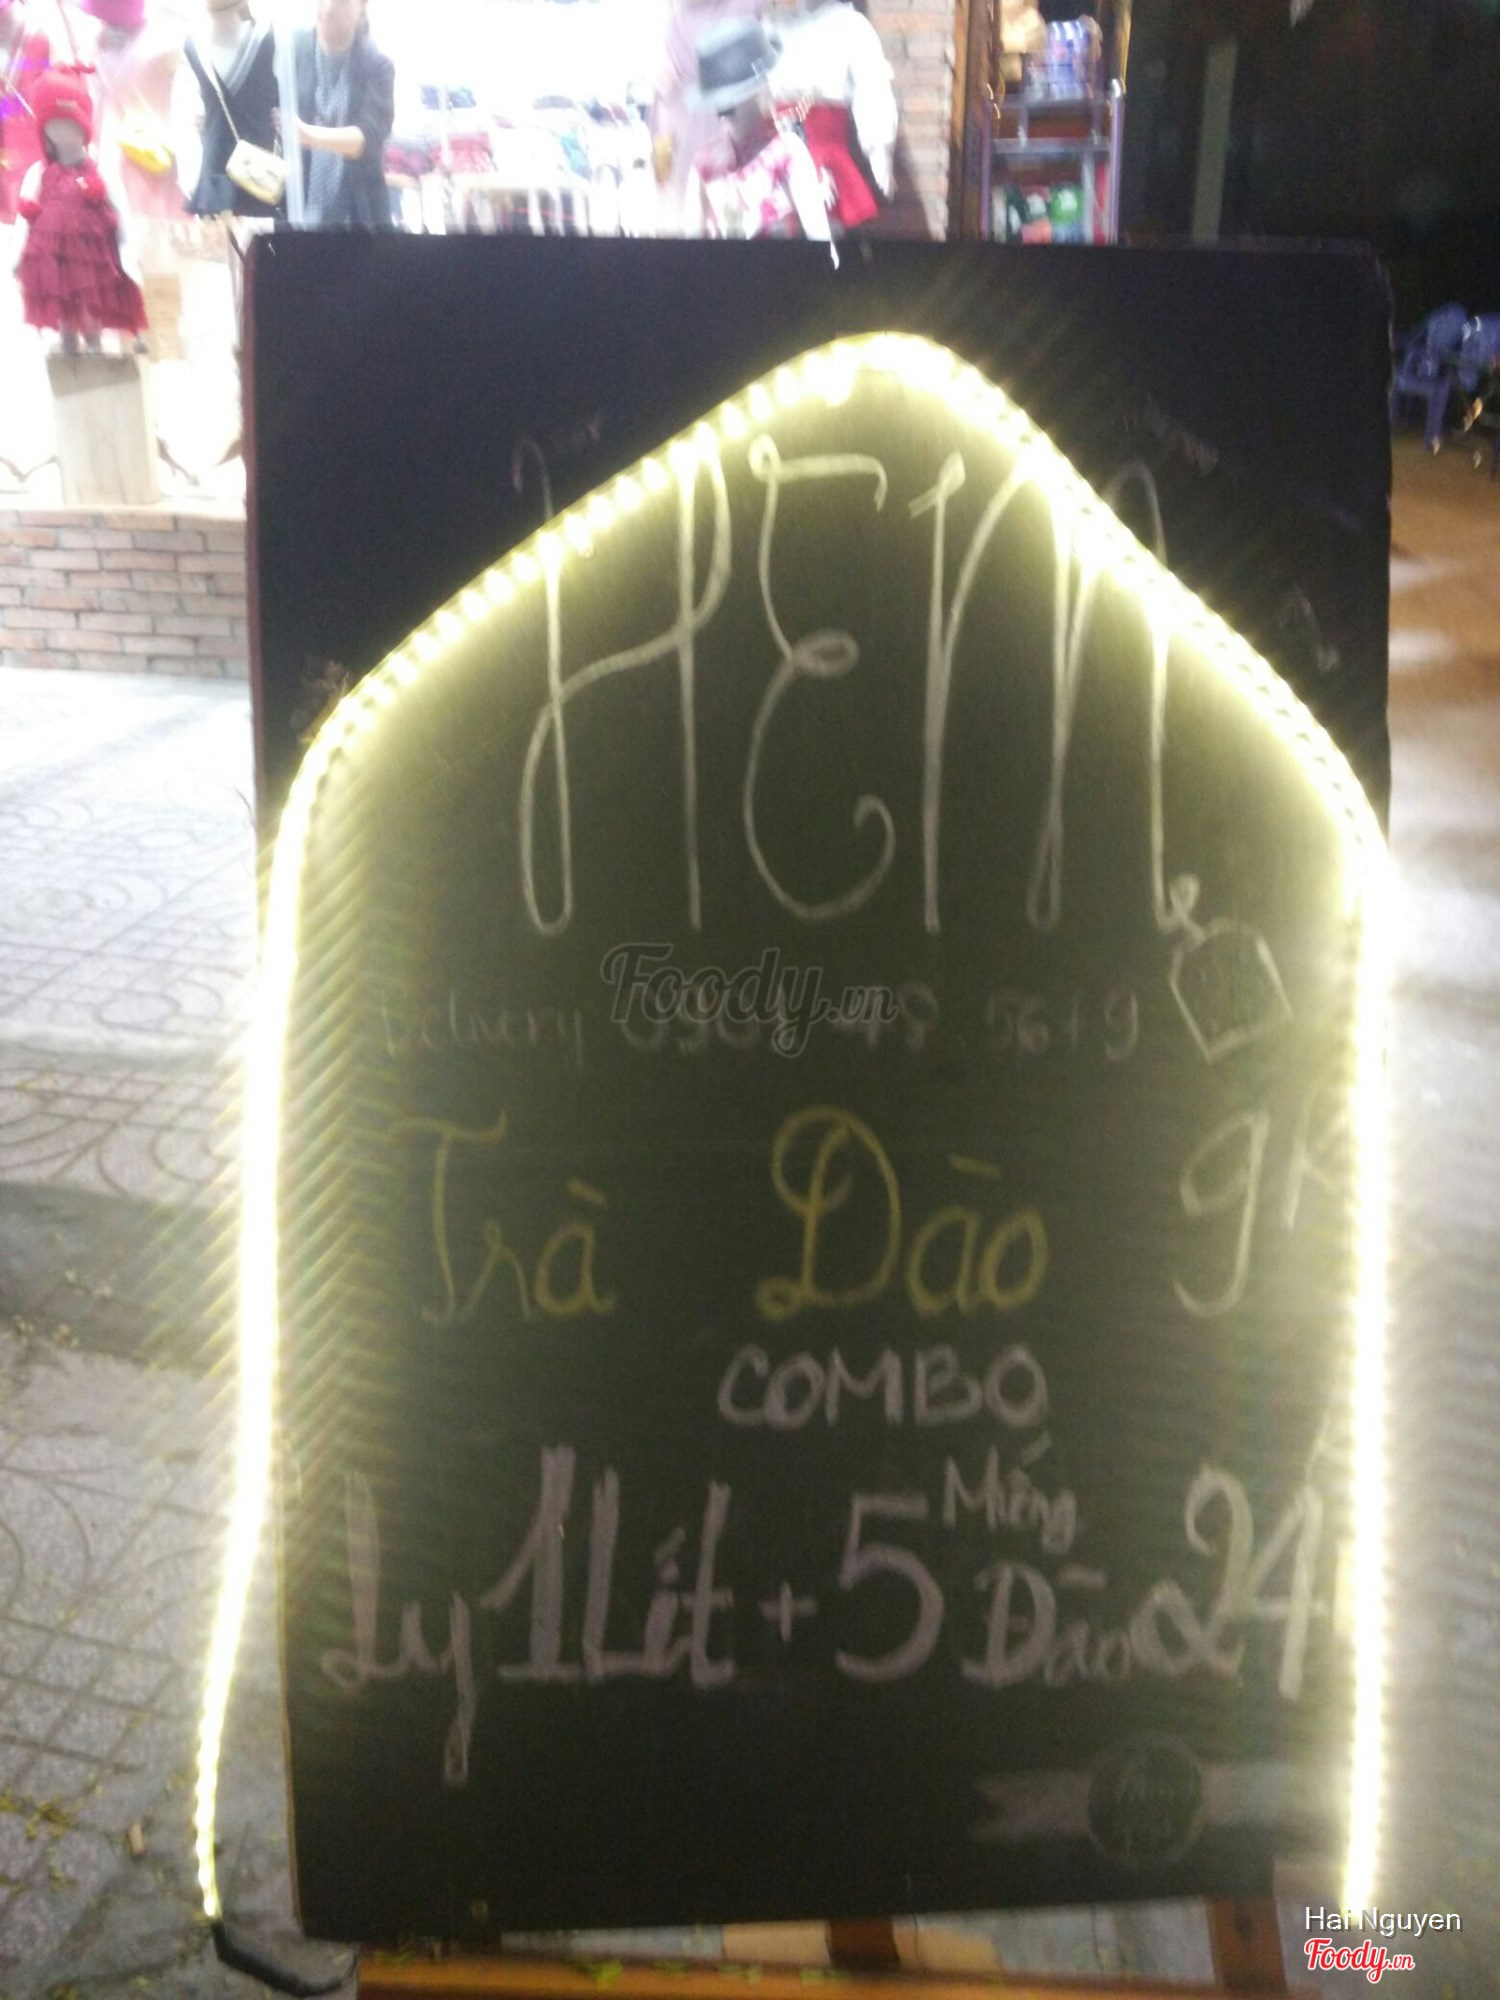 HEM
Delivery
Foody.vn
Trà Đào 9K
COMBO
Ly 1 Lít + 5 Miếng Đào 24
Hai Nguyen
Foody.vn